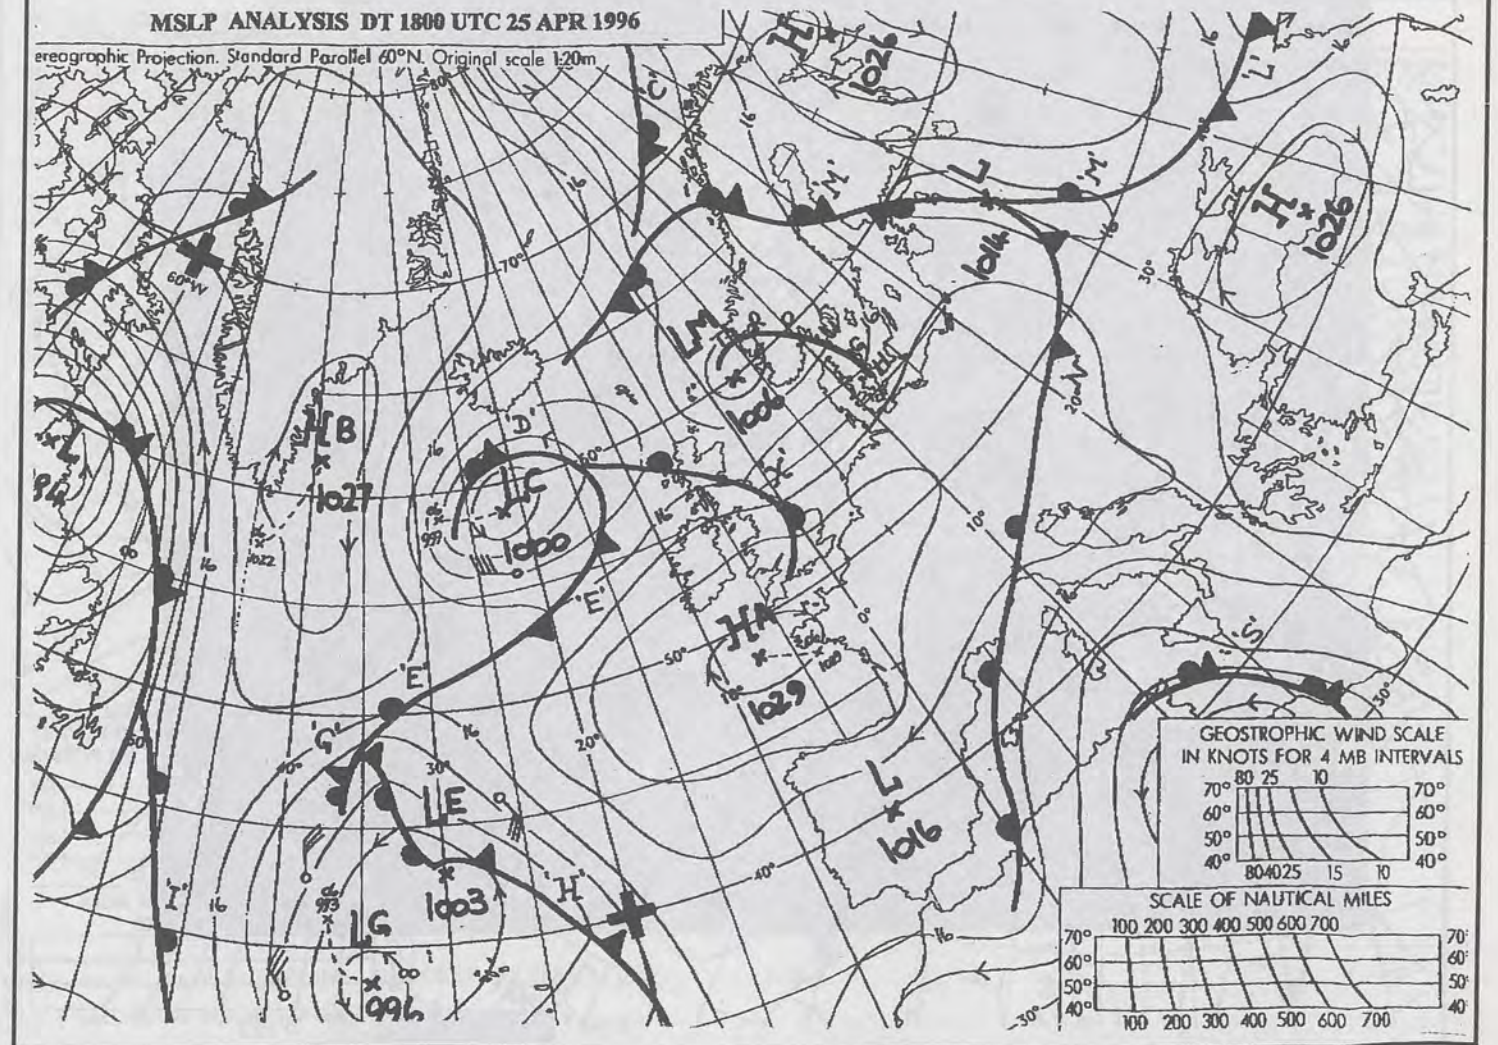 MSLP ANALYSIS DT 1800 UTC 25 APR 1996
ereographic Projection. Standard Parallel 60°N. Original scale 1:20m
80°
H
1026
'C'
16
16
16
'L'
16
'M'
L
'M'
16
1014
H
1026
30°
60°W
70°
16
LM
1006
20°
HB
1027
1022
16
'D'
60°
LC
1000
999
16
10°
16
'E'
HA
1029
10°
50°
0°
'E'
'G'
16
20°
40°
30°
LE
1003
'H'
LG
993
996
L
1016
40°
16
'I'
16
50°
'S'
30°
30°
GEOSTROPHIC WIND SCALE
IN KNOTS FOR 4 MB INTERVALS
80 25 10
70° 70°
60° 60°
50° 50°
40° 40°
80 40 25 15 10
SCALE OF NAUTICAL MILES
100 200 300 400 500 600 700
70° 70°
60° 60°
50° 50°
40° 40
100 200 300 400 500 600 700